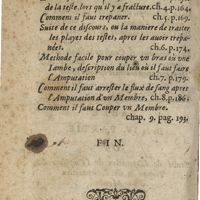 de la teste, lors qu'il y a fracture. ch.4.p.164.
Comment il faut trepaner. ch.5.p.169.
Suite de ce discours, ou la maniere de traiter
les playes des testes, apres les avoir trepa-
nées. ch.6.p.174.
Methode facile pour couper un bras ou une
Iambe, description du lieu où il faut faire
l'Amputation ch.7.p.179.
Comment il faut arrester le flux de sang apres
l'Amputation d'un Membre, ch.8.p.186.
Comment il faut Couper un Membre.
chap. 9. pag. 193.
FIN.